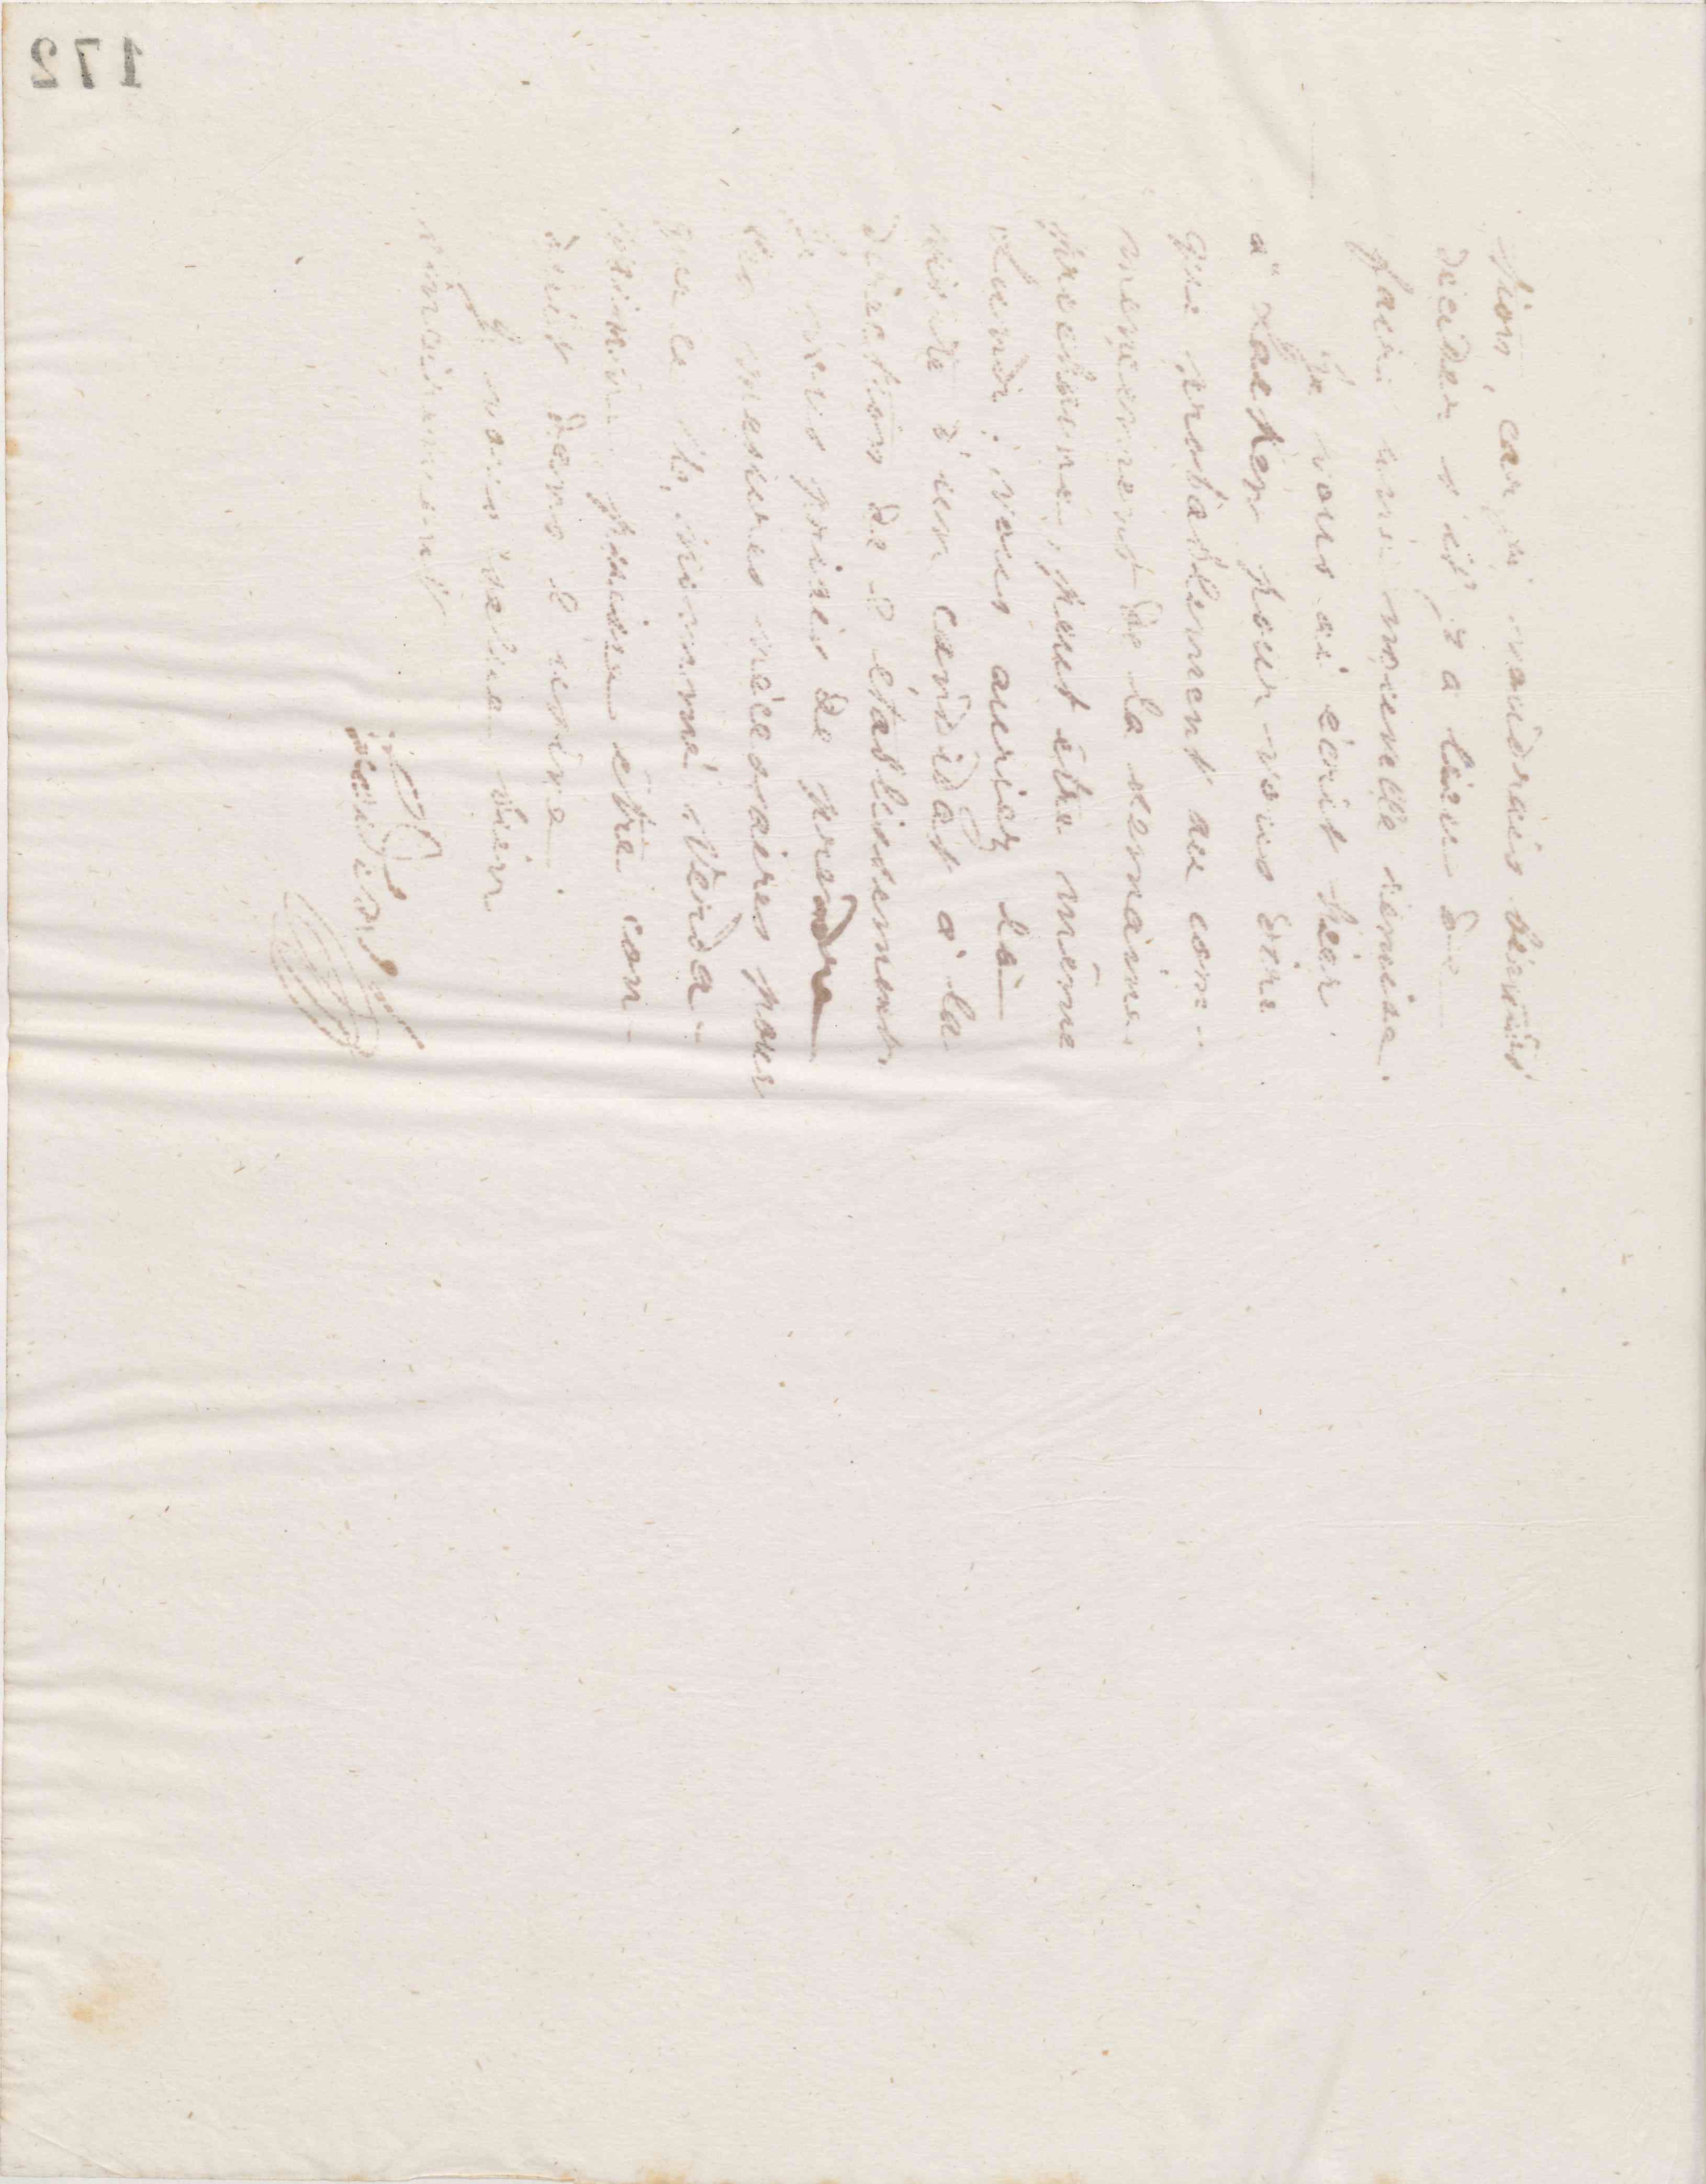 tion, car je voudrais bientôt
décider s'il y a lieu de
faire une nouvelle remise.
Je vous ai écrit hier
à Laeken pour vous dire
que probablement au com-
mencement de la semaine
prochaine, peut être même
Lundi, vous auriez la
visite d'un candidat à la
direction de l'établissement.
Je vous prie de prendre
les mesures nécessaires pour
que le dit, nommé
puisse être con-
duit dans l'usine.
Je vous salue bien
sincèrement
172